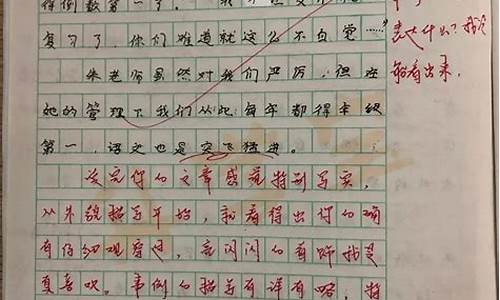 得倒数第一了。
复习了，你们难道就这么不自觉……"
朱老师虽然对我们严厉，但在
她的管理下我们从此每年都得年级
第一，语文也是突飞猛进。
读完你的文章感觉特别写实，
从外貌描写开始，就看得出你的确
有仔细观察过，亮闪闪的首饰我是
真喜欢。事例的描写有详有略，将
表达什么？我没
能看出来。